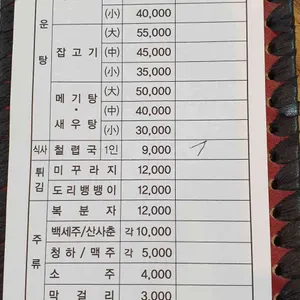 (小) 40,000
운탕
잡고기
(大) 55,000
(中) 45,000
(小) 35,000
메기탕
·
새우탕
(大) 50,000
(中) 40,000
(小) 30,000
식사 철렵국 1인 9,000
튀김
미꾸라지 12,000
도리뱅뱅이 12,000
주류
복분자 12,000
백세주/산사춘 각 10,000
청하/맥주 각 5,000
소주 4,000
막걸리 3,000